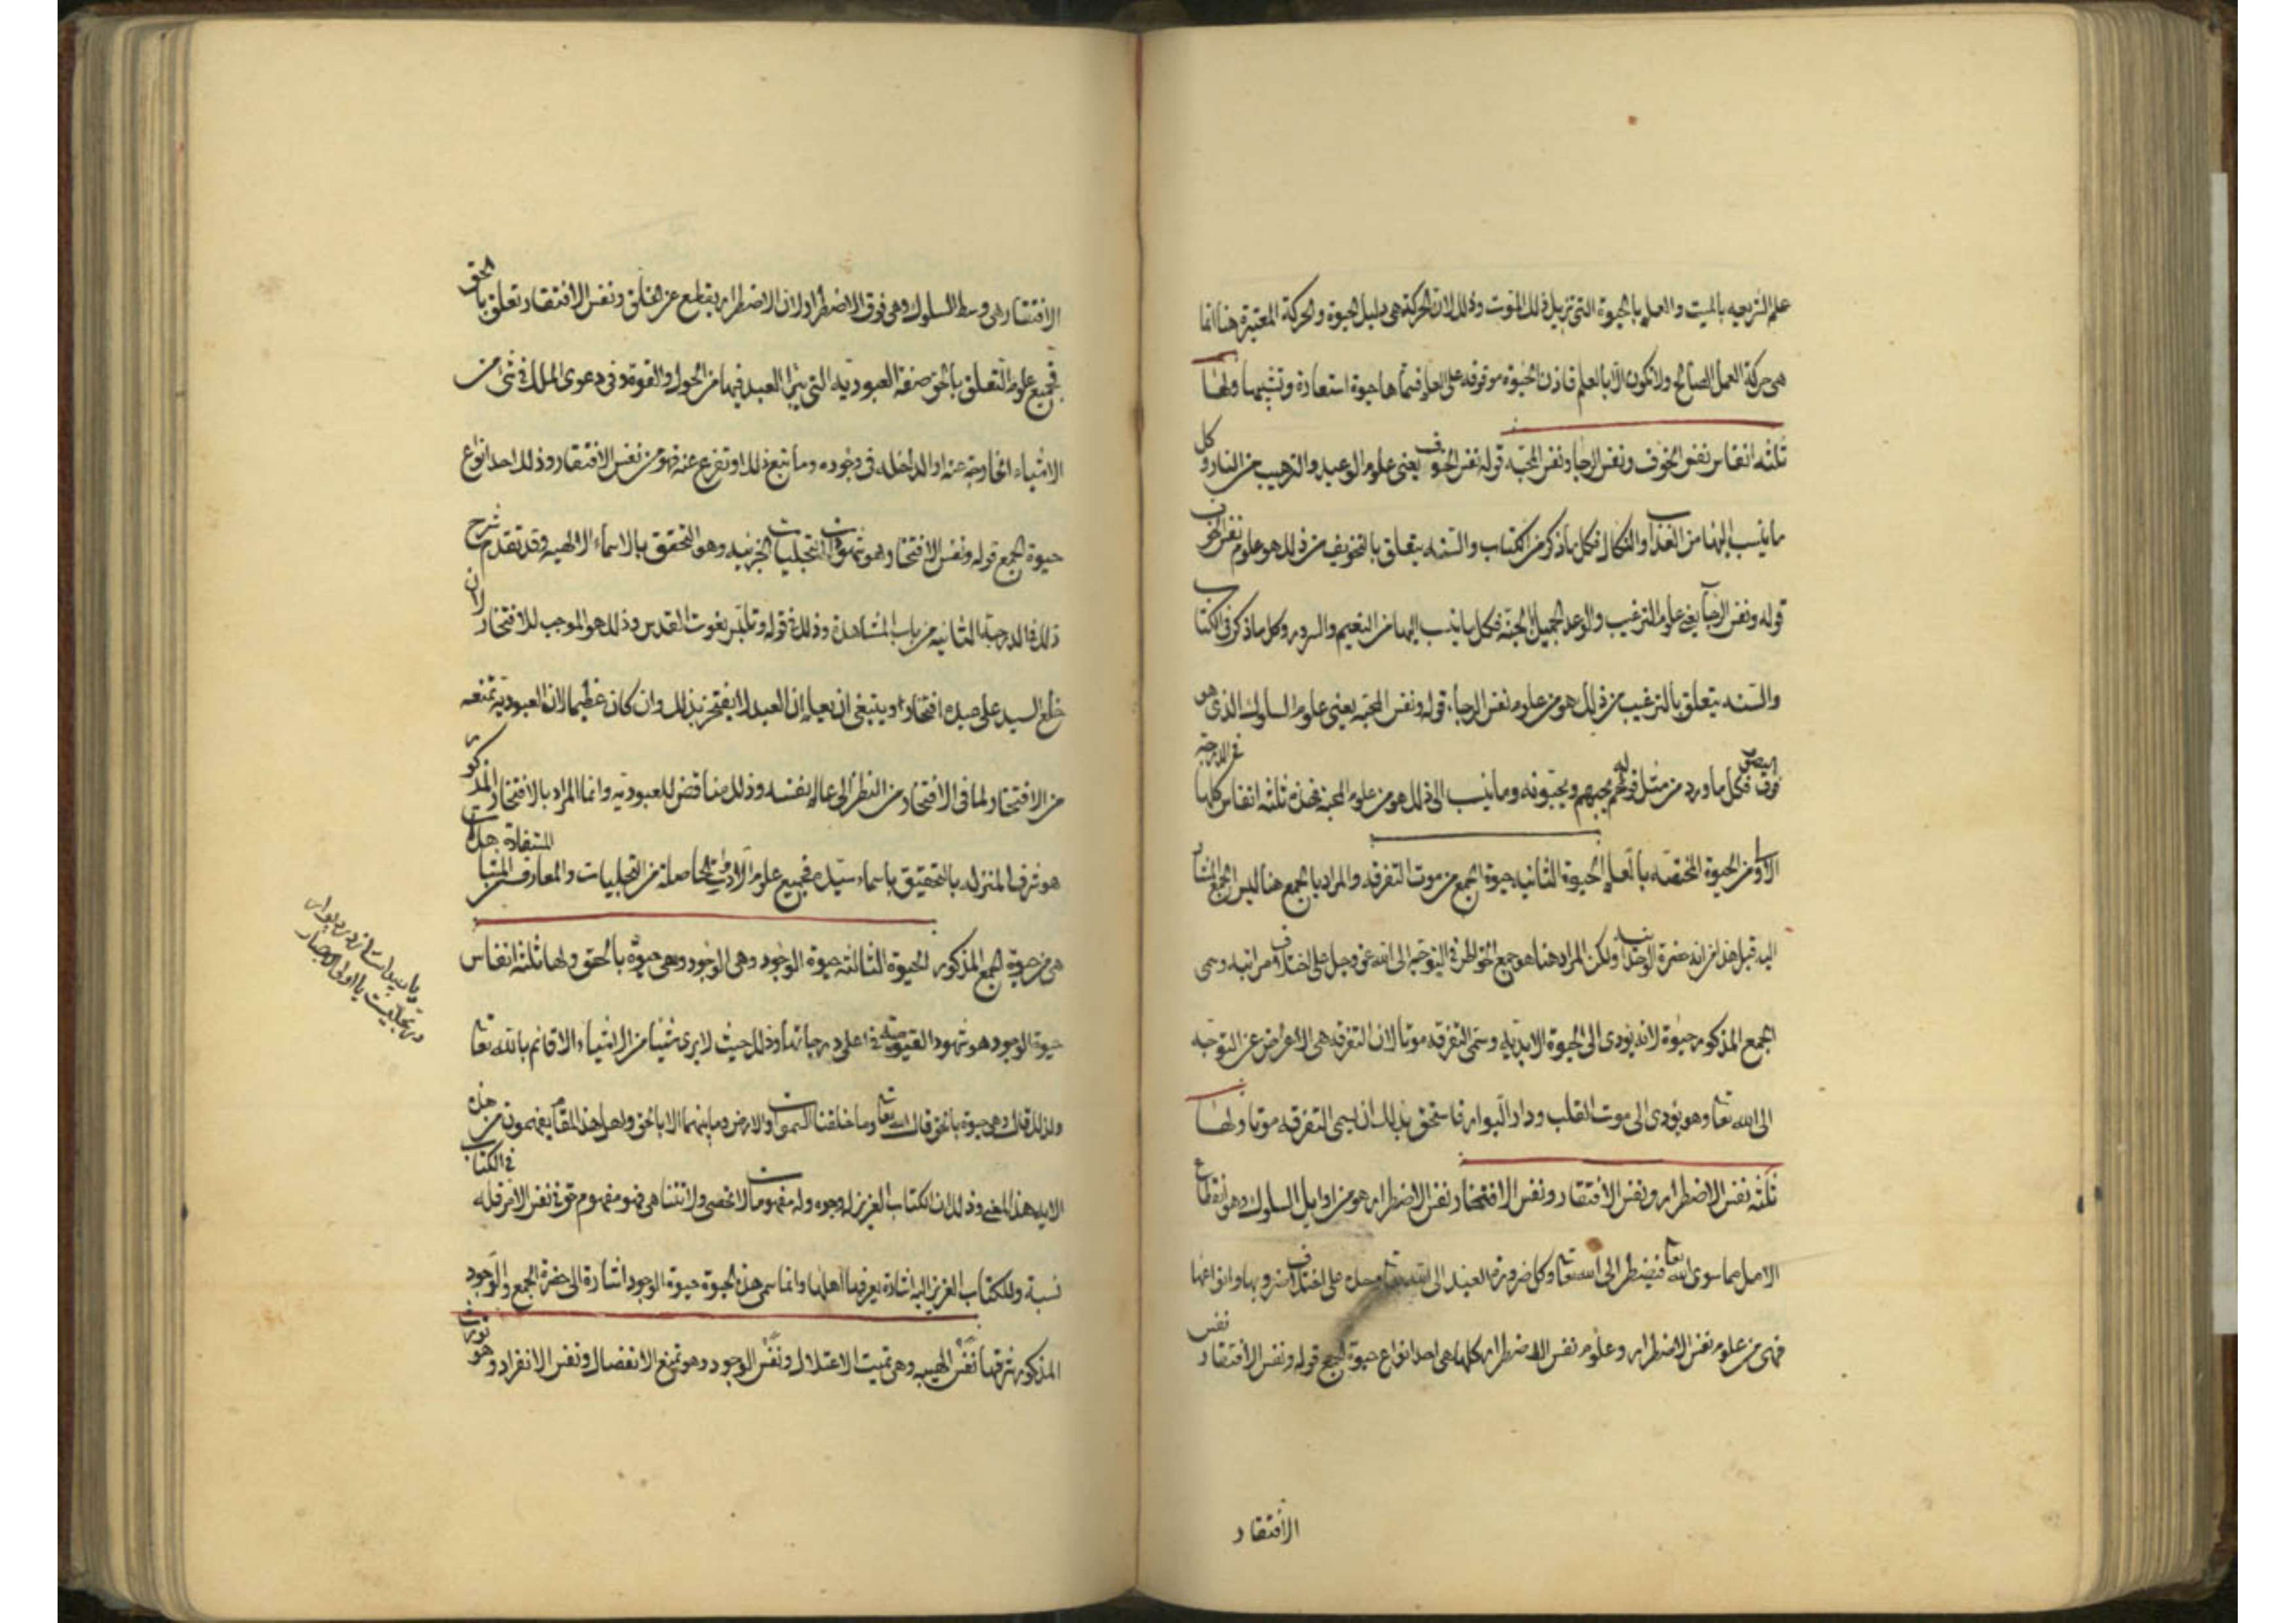 علم الشريعه بالميت والعلم بالحيوة التى تزيل ذلك الموت وذلك لان الحركة هى دليل الحيوة والحركة المعتبرة هنا انما
هى حركة العمل الصالح ولا تكون الا بالعلم فاذن الحيوة موقوفه على العلم فسماها حيوة استعارة وتشبيها ولها
ثلثه انفاس نفس الخوف ونفس الرجا ونفس المحبه قوله نفس الخوف يعنى علوم الوعيد والترهيب من النار وكل
ما ينسب اليها من العذاب والنكال فكل ما ذكر من الكتاب والسنه يتعلق بالتخويف من ذلك هو علوم نفس الخوف
قوله ونفس الرجا يعنى علوم الترغيب والوعد الجميل الجنه فكل ما ينسب اليها من النعيم والسرور وكل ما ذكر فى الكتاب
والسنه يتعلق بالترغيب من ذلك هو من علوم نفس الرجاء قوله ونفس المحبه يعنى علوم السلوك الذى هو
فوق فكل ما ورد من مثل قوله يحبهم ويحبونه وما ينسب الى ذلك هو من علوم المحبه فهذه ثلثه انفاس كلها فى الدرجه
الاولى من الحيوة المختصه بالعلم الحيوة الثانيه حيوة الجمع من موت التفرقه والمراد بالجمع هنا ليس الجمع المشار
اليه قبل هذا فى انه حضرة ولكن المراد هنا هو جمع الخواطر فى التوجه الى الله عز وجل على اختلاف مراتبه وسمى
الجمع المذكور حيوة لانه يودى الى الحيوة الابديه وسمى التفرقه موتا لان التفرقه هى الاعراض عن التوجه
الى الله تعالى وهو يودى الى موت القلب ودار البوار فاستحق بذلك ان يسمى التفرقه موتا ولها
ثلثه نفس الاضطرار ونفس الافتقار ونفس الافتخار نفس الاضطرار هو من اوايل السلوك وهو انقطاع
الامل مما سوى الله تعالى فيضطر الى الله تعالى وكل ضرورة العبد الى الله تعالى على اختلاف ضروبها وانواعها
فهى من علوم نفس الاضطرار وعلوم نفس الاضطرار كلها هى احد انواع حيوة الجمع قوله ونفس الافتقار نفس
الافتقار
الافتقار هى وسط السلوك وهى فوق الاضطرار لان الاضطرار يقطع عن الخلق ونفس الافتقار تعلق بالحق
فجميع علوم التعلق بالحق صفة العبوديه التى يتبرا العبد فيها من الحول والقوة وفى دعوى الملك فى شئ من
الاشياء الخارجة عنه او الداخله فى وجوده وما تبع ذلك او تفرع عنه فهو من نفس الافتقار وذلك احد انواع
حيوة الجمع قوله ونفس الافتخار وهو شهوات التجليات الجزئيه وهو التحقق بالاسماء الالهيه وقد تقدم شرح
ذلك فى الدرجة الثانيه من باب المشاهدة وذلك فى قوله وتلبس نعوت القدس وذلك هو الموجب للافتخار لان
خلع السيد على عبده افتخارا وينبغى ان يعلم ان العبد لا يفتخر بذلك وان كان عظيما لان العبوديه تمنعه
من الافتخار لما فى الافتخار من النظر الى عاله نفسه وذلك مناقض للعبوديه وانما المراد بالافتخار المذكور
هو شرف المنزله بالتحقيق باسماء سيده فجميع علوم الحاصله من التجليات والمعارف المستفادة
هى من حيوة الجمع المذكور الحيوة الثالثه حيوة الوجود وهى الوجود وهى حيوة بالحق ولها ثلثه انفاس
حيوة الوجود هو شهود القيوميه فى اعلى درجاتها وذلك حيث لا يرى شيئا من الاشياء الا قائم بالله تعالى
ولذلك قال وهى حيوة بالحق قال الله تعالى وما خلقنا السموات والارض وما بينهما الا بالحق واهل هذا المقام يفهمون من هذه
الايه هذا المعنى وذلك لان الكتاب العزيز له وجوه وله مفهومات لا تحصى ولا تتناهى فهو مفهوم حق فى نفس الامر فله فى الكتاب
نسبة وللكتاب العزيز اليه اشارة يعرفها اهلها وانما سمى هذه الحيوة حيوة الوجود اشارة الى حضرة الجمع والوجود
المذكور شرفها نفس الهيبه وهى تميت الاعتلال ونفس الوجود وهو تمنع الانفصال ونفس الانفراد وهو
يا اولى الابصار